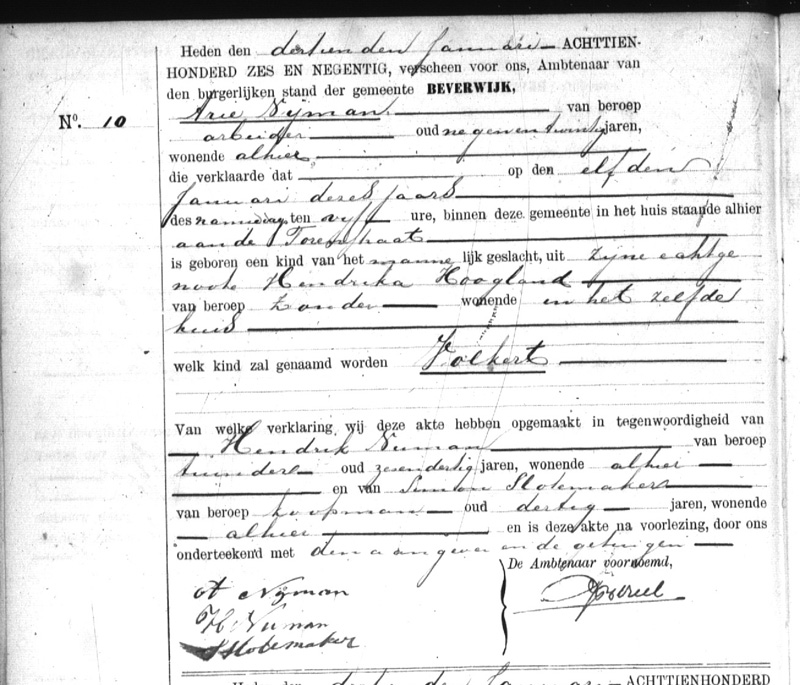 Heden den dertienden Januari — ACHTTIEN-
HONDERD ZES EN NEGENTIG, verscheen voor ons, Ambtenaar van
den burgerlijken stand der gemeente BEVERWIJK,
Arie Nijman van beroep
No. 10
arbeider oud negenentwintig jaren,
wonende alhier
die verklaarde dat op den elfden
Januari dezes jaars
des namiddag ten vijf ure, binnen deze gemeente in het huis staande alhier
aan de Torenstraat
is geboren een kind van het manne lijk geslacht, uit zijne echtge
noote Hendrika Hoogland
van beroep zonder wonende in het zelfde
huis
welk kind zal genaamd worden Volkert
Van welke verklaring wij deze akte hebben opgemaakt in tegenwoordigheid van
Hendrik Numan van beroep
tuinder oud zesendertig jaren, wonende alhier
en van Simon Slotemaker
van beroep koopman oud dertig jaren, wonende
alhier en is deze akte na voorlezing, door ons
onderteekend met den aangever en de getuigen
De Ambtenaar voornoemd,
A Nijman
H Numan
S Slotemaker
Januari — ACHTTIENHONDERD